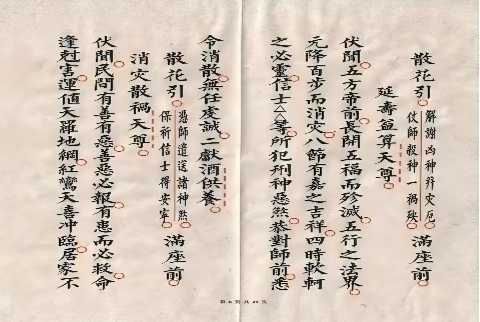 散花引 解謝凶神并灾厄 仗師殺神一禍殃 滿座前
延壽益算天尊
伏聞五方帝前長開五福而殄滅五行之法界
元降百步而消灾八節有嘉之吉祥四時軟軻
之必靈信士△△等所犯刑神惡煞恭對師前悉
令消散無任虔誠二獻酒供養
散花引 憑師遣送諸神煞 保祈信士得安寧 滿座前
消灾散禍天尊
伏聞民間有善有惡善惡必報有患而必救命
逢尅害運值天羅地網紅鸞天喜冲臨居家不